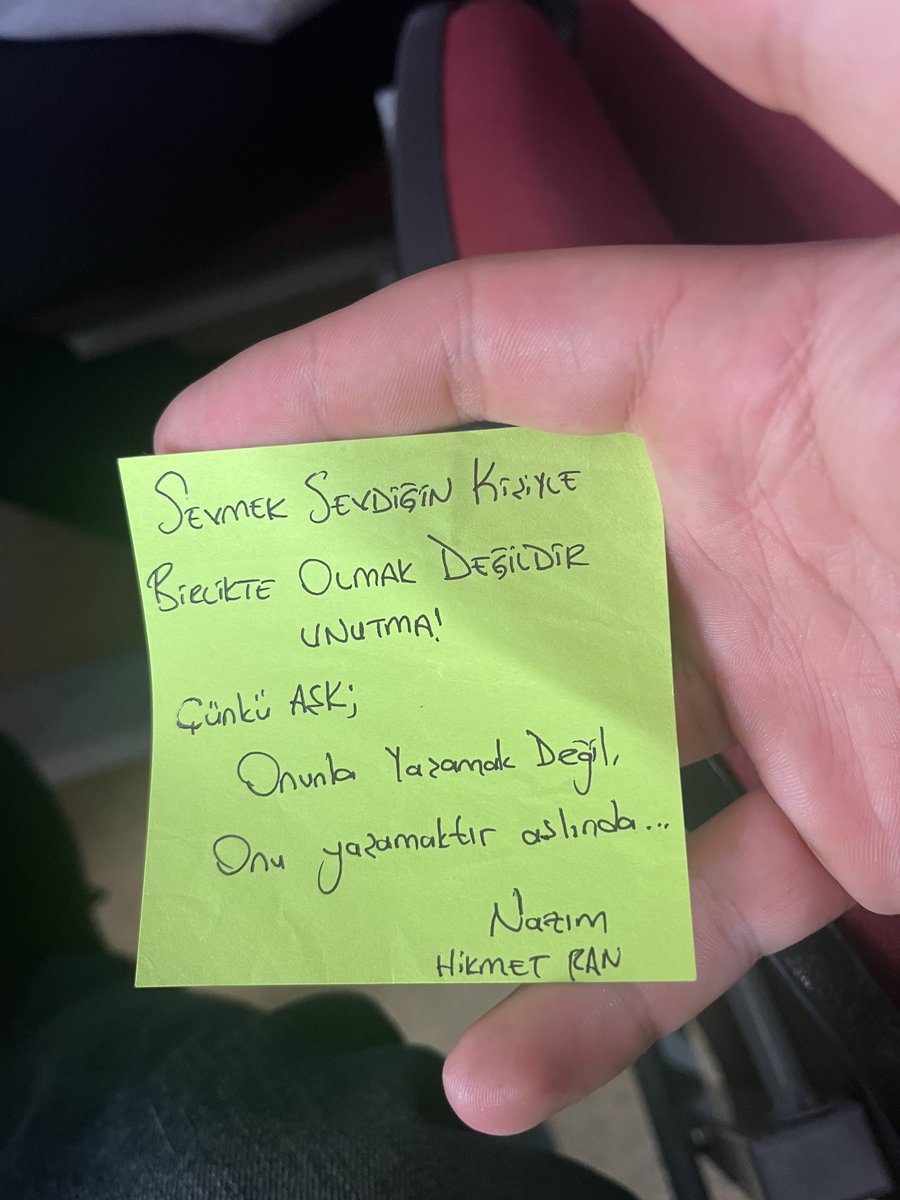 SEVMEK SEVDİĞİN KİŞİYLE
BİRLİKTE OLMAK DEĞİLDİR
UNUTMA!
ÇÜNKÜ AŞK;
Onunla Yaşamak Değil,
Onu yaşamaktır aslında...
Nazım
HİKMET RAN